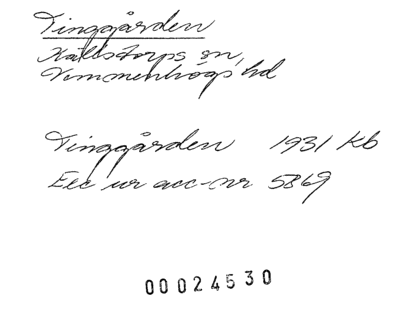 Tinggården
Källstorps sn,
Vemmenhögs hd
Tinggården 1931 Kb
Exc ur acc-nr 5869
00024530